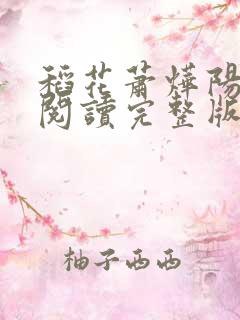 稻花蕭燁陽
閱讀完整版
柚子西西